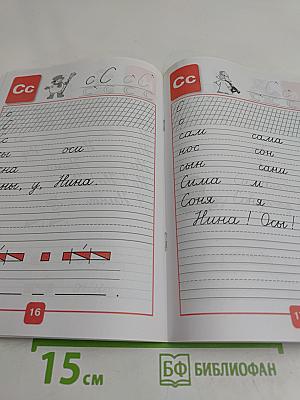 Сс
с С с С
С
с
сы оси
на
ны, у, Нина.
16
Сс
с С
С
с
сам сама
нос сон
сын сани
Сима м
Соня я
Нина! Осы!
15 см
БФ БИБЛИОФАН